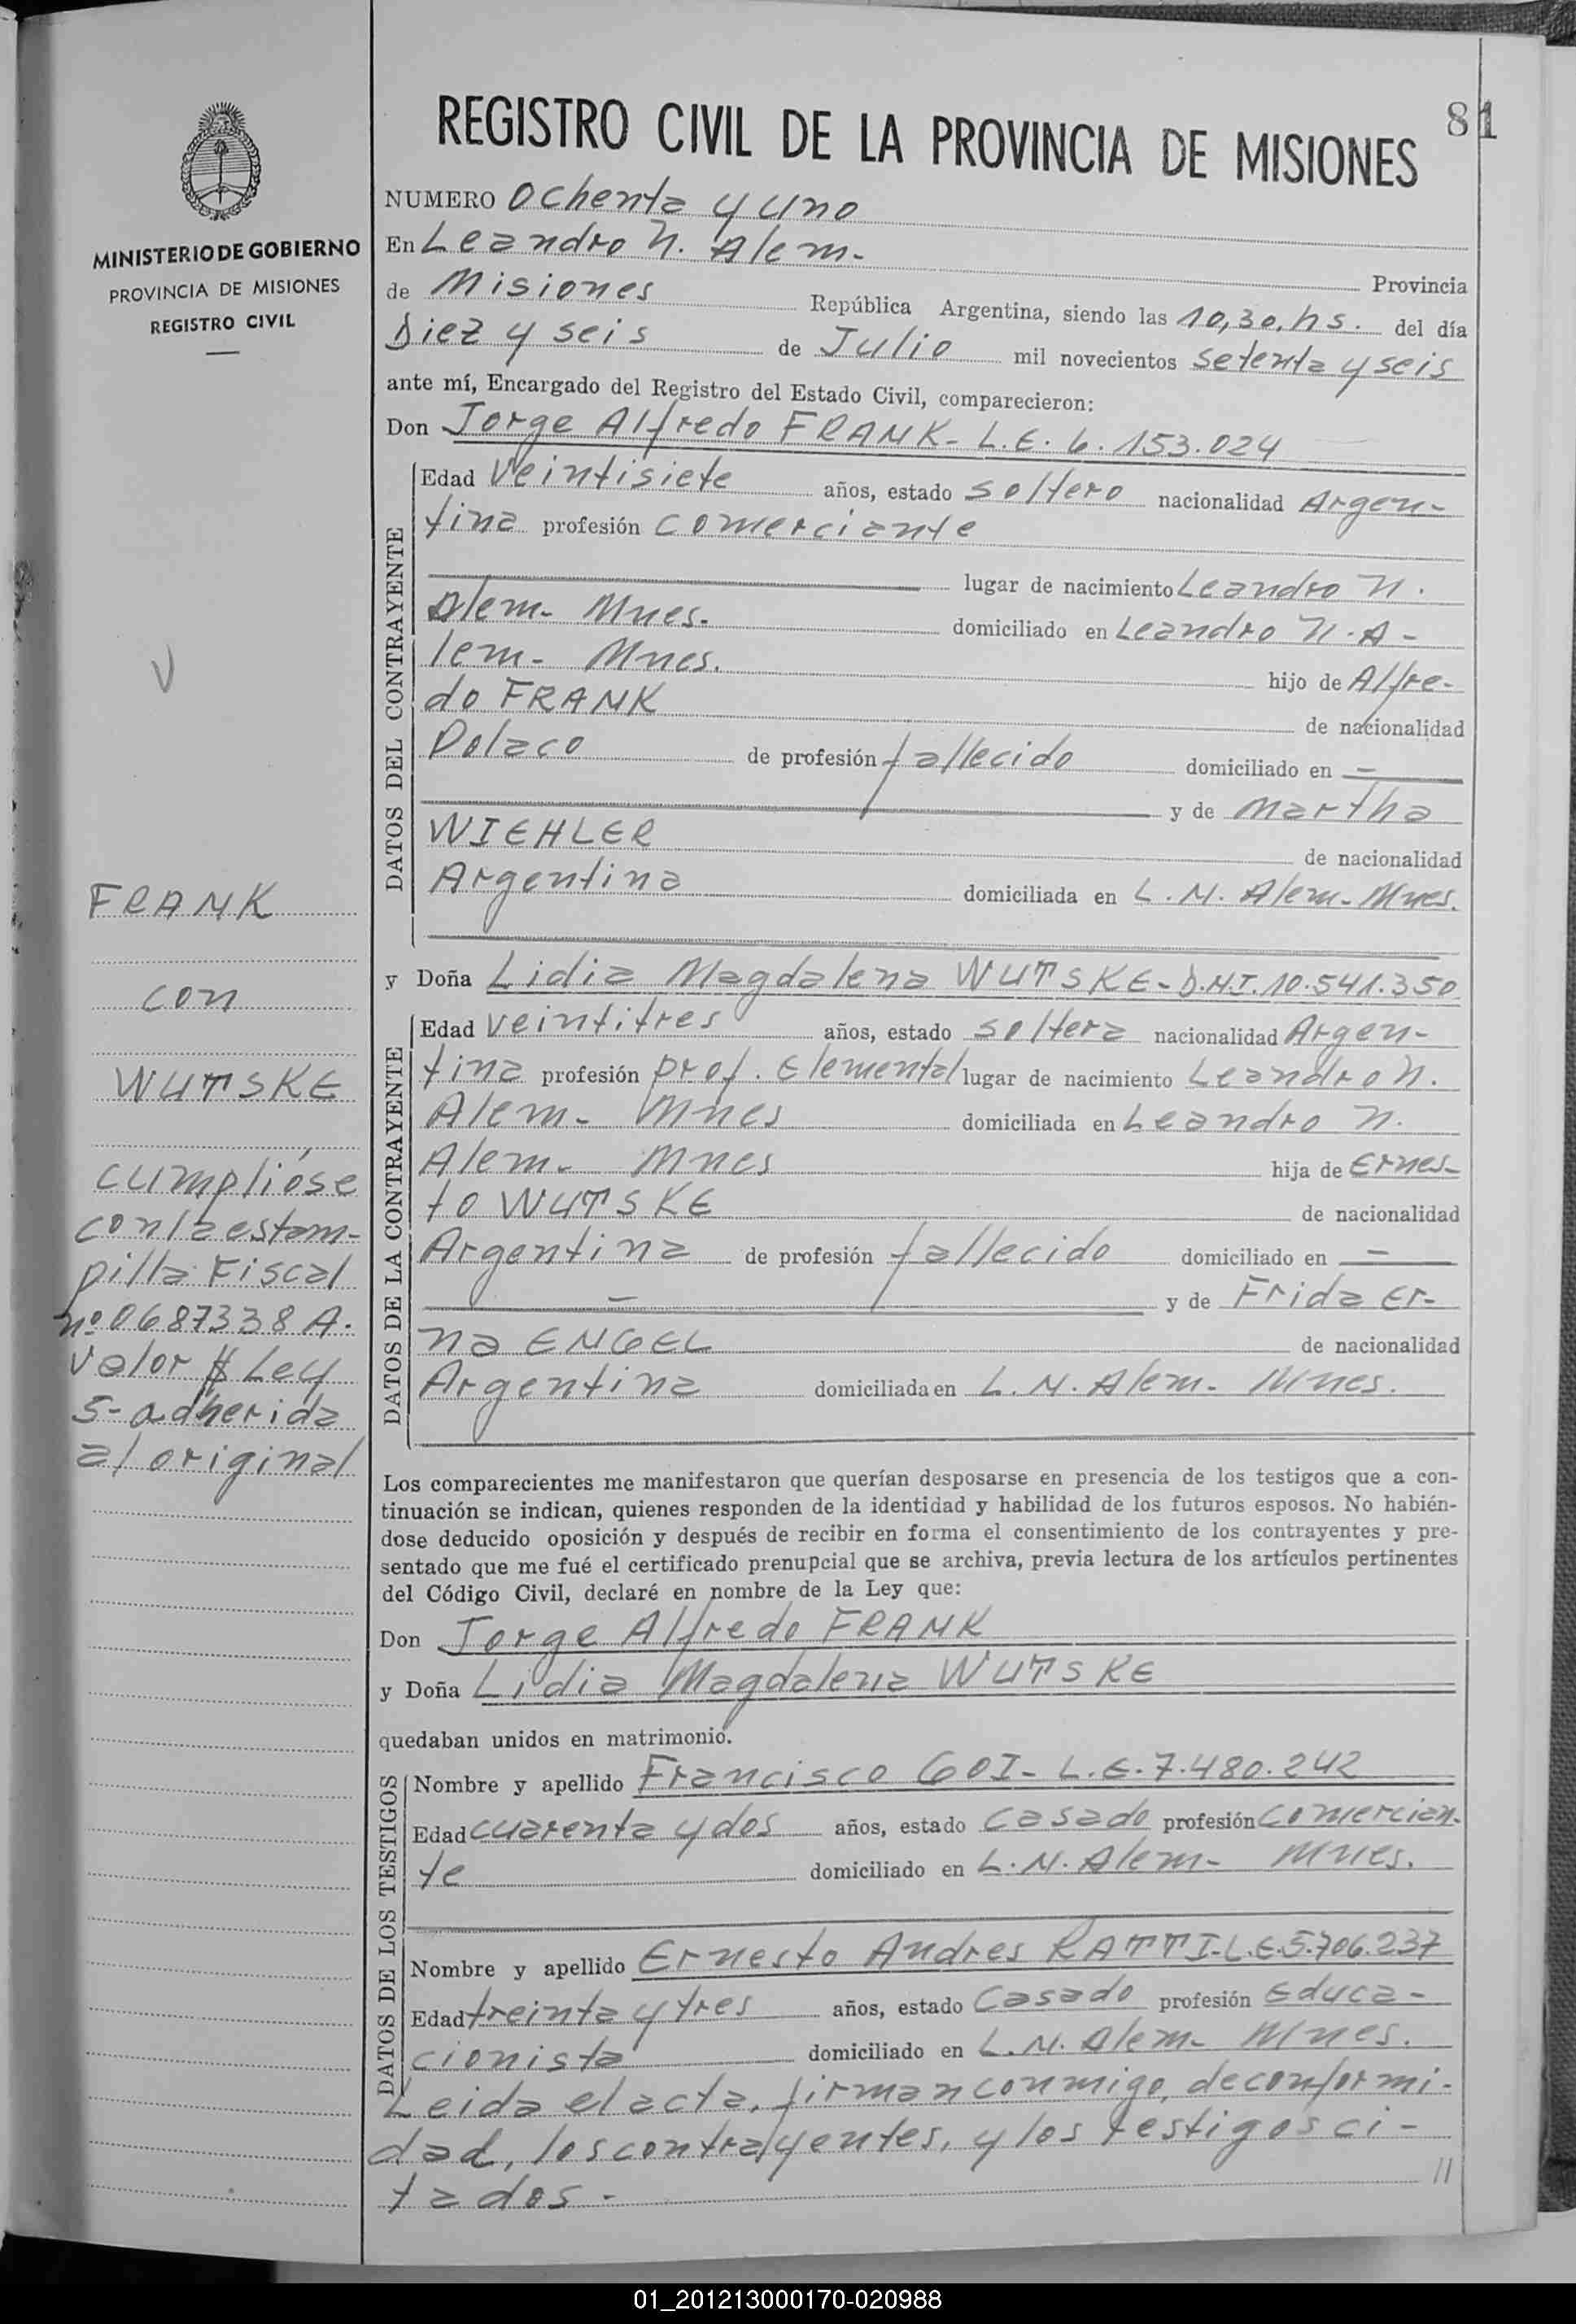 81
REGISTRO CIVIL DE LA PROVINCIA DE MISIONES
MINISTERIO DE GOBIERNO
PROVINCIA DE MISIONES
REGISTRO CIVIL
V
FRANK
con
WUTTSKE
cumplióse
con la estam-
pilla Fiscal
nº 0687338 A.
Valor $ Ley
5- adherida
al original
NUMERO Ochenta y uno
En Leandro N. Alem.- Provincia
de Misiones República Argentina, siendo las 10,30.hs. del día
Diez y seis de Julio mil novecientos setenta y seis
ante mí, Encargado del Registro del Estado Civil, comparecieron:
Don Jorge Alfredo FRANK- L.E. 6.153.024
DATOS DEL CONTRAYENTE
Edad Veintisiete años, estado soltero nacionalidad Argen-
tina profesión comerciante
lugar de nacimiento Leandro N.
Alem- Mnes.- domiciliado en Leandro N. A-
lem- Mnes. hijo de Alfre-
do FRANK de nacionalidad
Polaco de profesión fallecido domiciliado en —
y de Martha
WIEHLER de nacionalidad
Argentina domiciliada en L.N. Alem- Mnes.
y Doña Lidia Magdalena WUTTSKE- D.N.I. 10.541.350
DATOS DE LA CONTRAYENTE
Edad Veintitres años, estado soltera nacionalidad Argen-
tina profesión prof. Elemental lugar de nacimiento Leandro N.
Alem- Mnes domiciliada en Leandro N.
Alem- Mnes hija de Ernes-
to WUTTSKE de nacionalidad
Argentina de profesión fallecido domiciliado en —
— y de Frida Er-
na ENGEL de nacionalidad
Argentina domiciliada en L.N. Alem- Mnes.
Los comparecientes me manifestaron que querían desposarse en presencia de los testigos que a con-
tinuación se indican, quienes responden de la identidad y habilidad de los futuros esposos. No habién-
dose deducido oposición y después de recibir en forma el consentimiento de los contrayentes y pre-
sentado que me fué el certificado prenupcial que se archiva, previa lectura de los artículos pertinentes
del Código Civil, declaré en nombre de la Ley que:
Don Jorge Alfredo FRANK
y Doña Lidia Magdalena WUTTSKE
quedaban unidos en matrimonio.
DATOS DE LOS TESTIGOS
Nombre y apellido Francisco GOI- L.E. 7.480.242
Edad cuarenta y dos años, estado Casado profesión Comercian-
te domiciliado en L.N. Alem- Mnes.
Nombre y apellido Ernesto Andres RATTI- L.E. 5.706.237
Edad treinta y tres años, estado Casado profesión Educa-
cionista domiciliado en L.N. Alem- Mnes.
Leida el acta, firman conmigo, de conformi-
dad, los contrayentes, y los testigos ci-
tados.- //
01_201213000170-020988